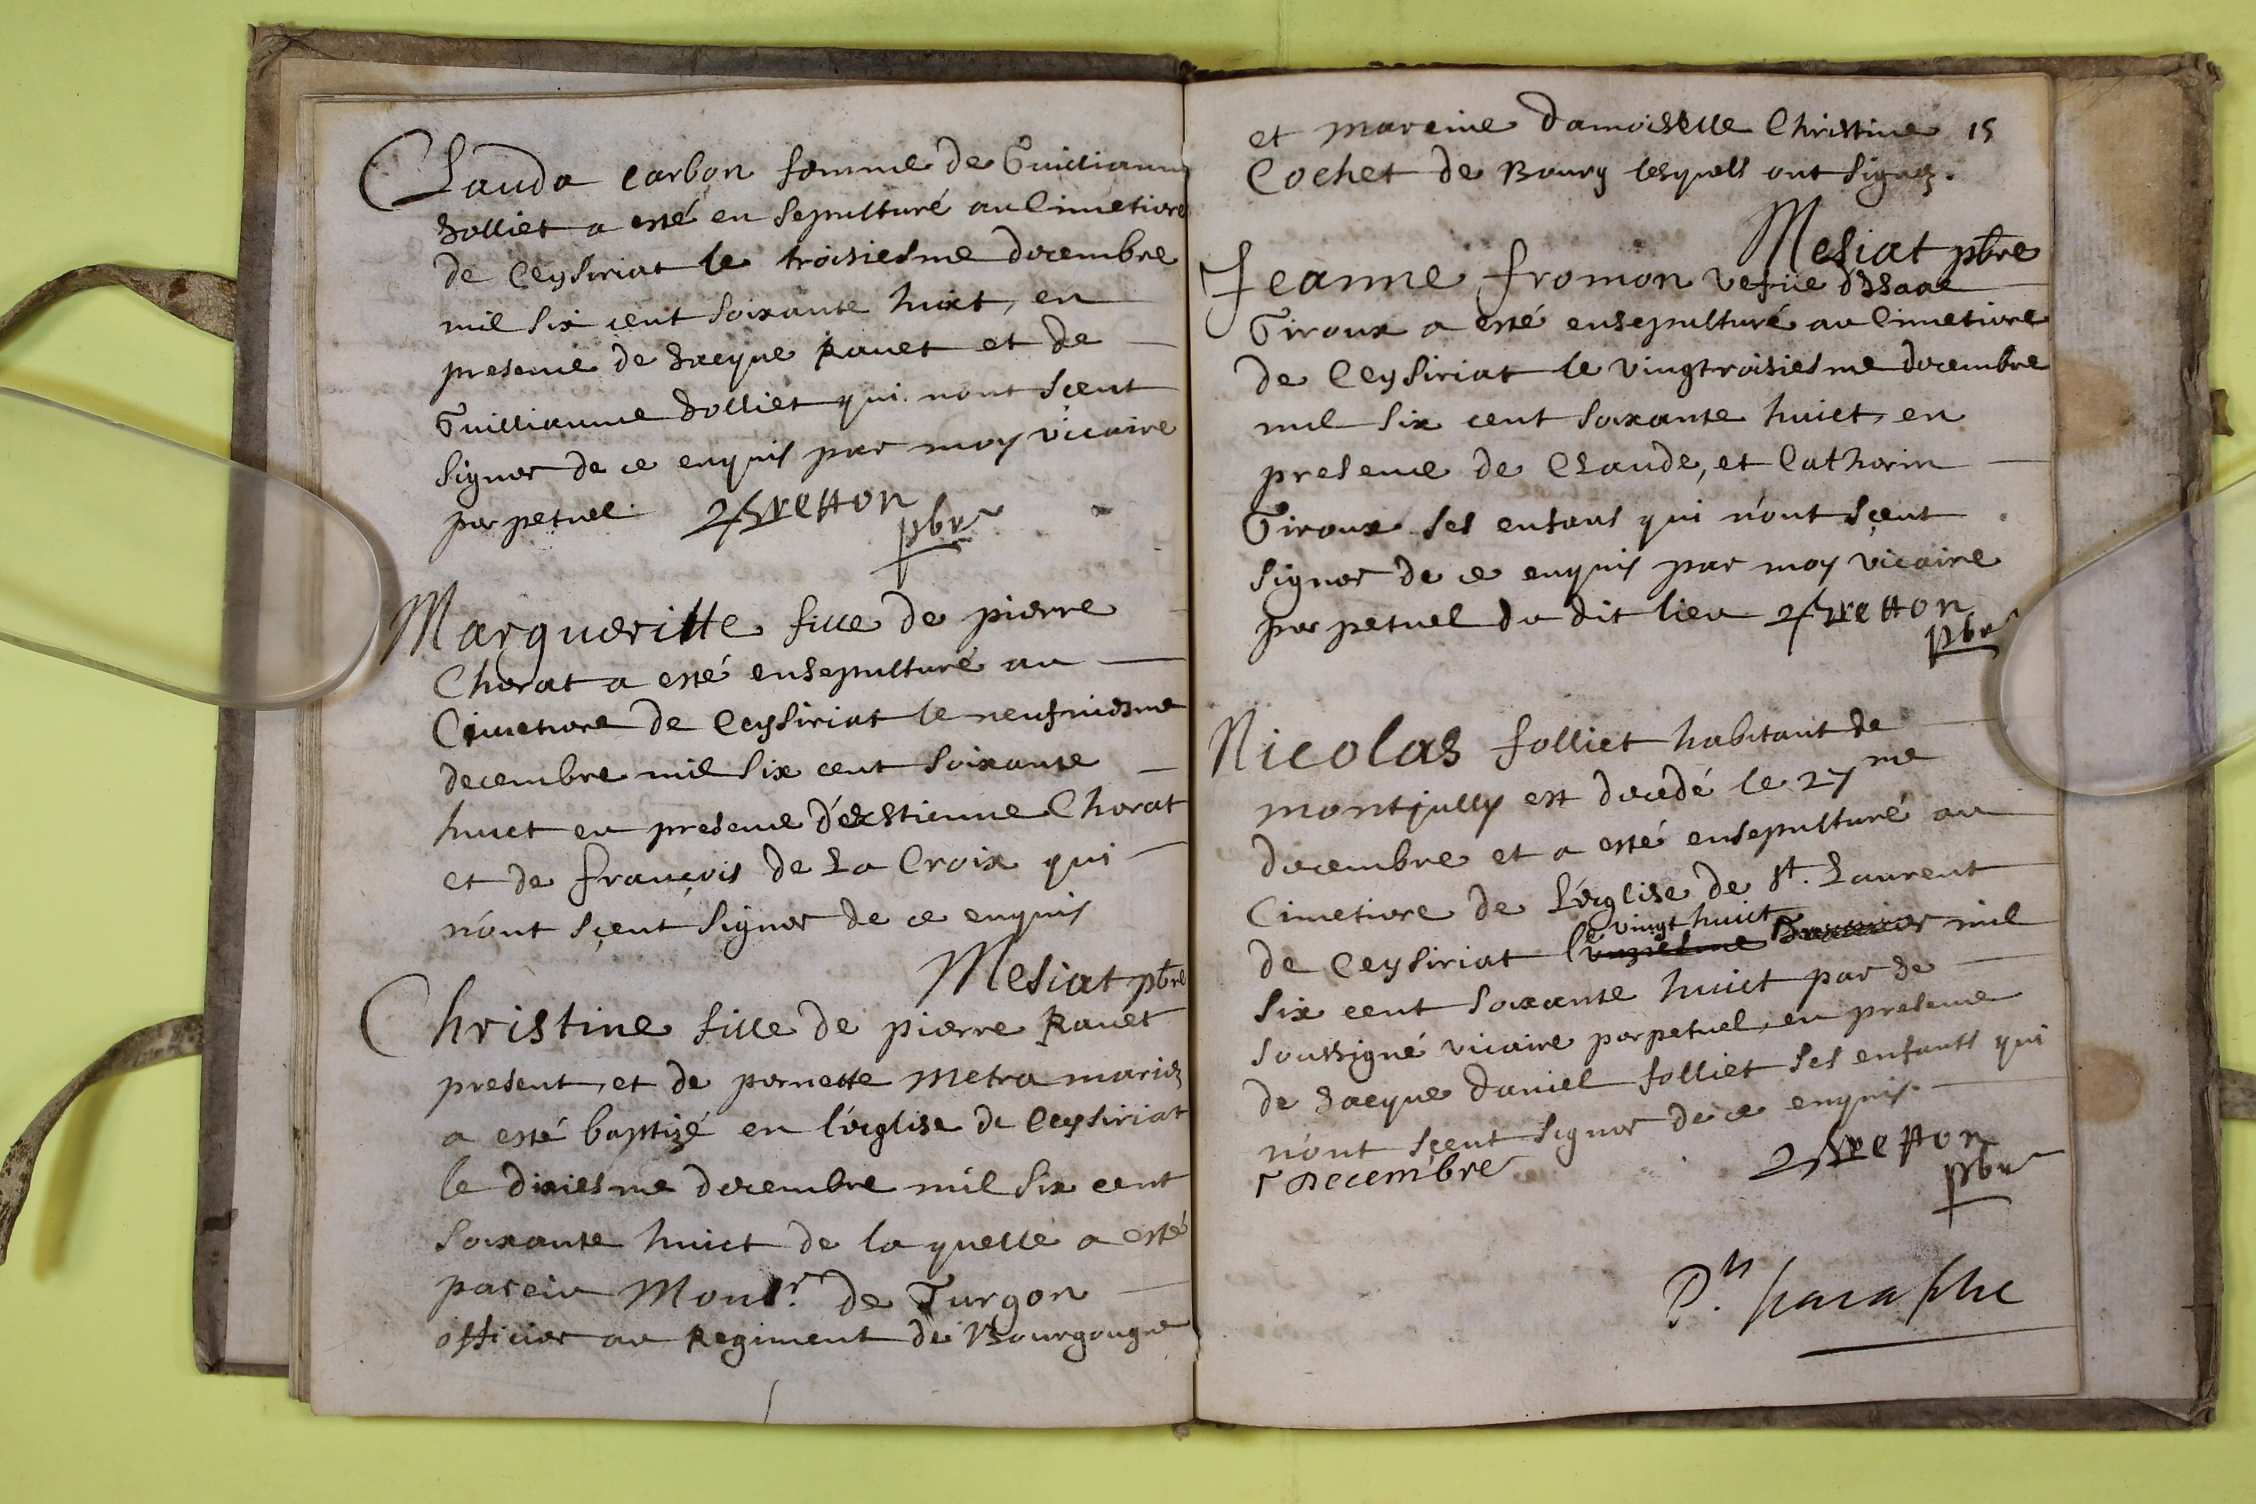 Clauda carbon femme de Guilliaume
Jolliet a esté en sepulturé au Cimetiere
de Ceysiriat le troisiesme decembre
mil six cent soixante huict, en
presence de Jacque Rauet et de
Guilliaume Jolliet qui nont sceut
signer de ce enquis par moy vicaire
perpetuel. Fretton
pbre
Margueritte fille de pierre
Chorat a esté ensepulturé au
Cimetiere de Ceysiriat le neufviesme
decembre mil six cent soixante
huict en presence d'estienne Chorat
et de françois de La Croix qui
n'ont sçeut signer de ce enquis
Mesiat pbre
Christine fille de pierre Rauet
present, et de pernette Metra mariez
a esté baptizé en l'eglise de Ceysiriat
le dixiesme decembre mil six cent
soixante huict de la quelle a esté
parein Monsr. de Turgon
officier au Regiment de Bourgougne
et mareine damoiselle Christine 15
Cochet de Bourg lesquels ont signez.
Mesiat pbre
Jeanne fromon vefue d'Isaac
Giroux a esté ensepulturé au Cimetiere
de Ceysiriat le vingtroisiesme decembre
mil six cent soixante huict, en
presence de Claude, et Catherin
Giroux ses enfans qui n'ont sçeut
signer de ce enquis par moy vicaire
perpetuel du dit lieu Fretton
pbre
Nicolas folliet habitant de
montjully est decedé le 27me
decembre et a esté ensepulturé au
Cimetiere de L'eglise de St. Laurent
de Ceysiriat le vingt huict mil
six cent soixante huict par le
soussigné vicaire perpetuel, en presence
de Jacque daniel folliet ses enfants qui
n'ont sçeut signer de ce enquis.
Decembre Fretton
pbre
P.ts paraphe